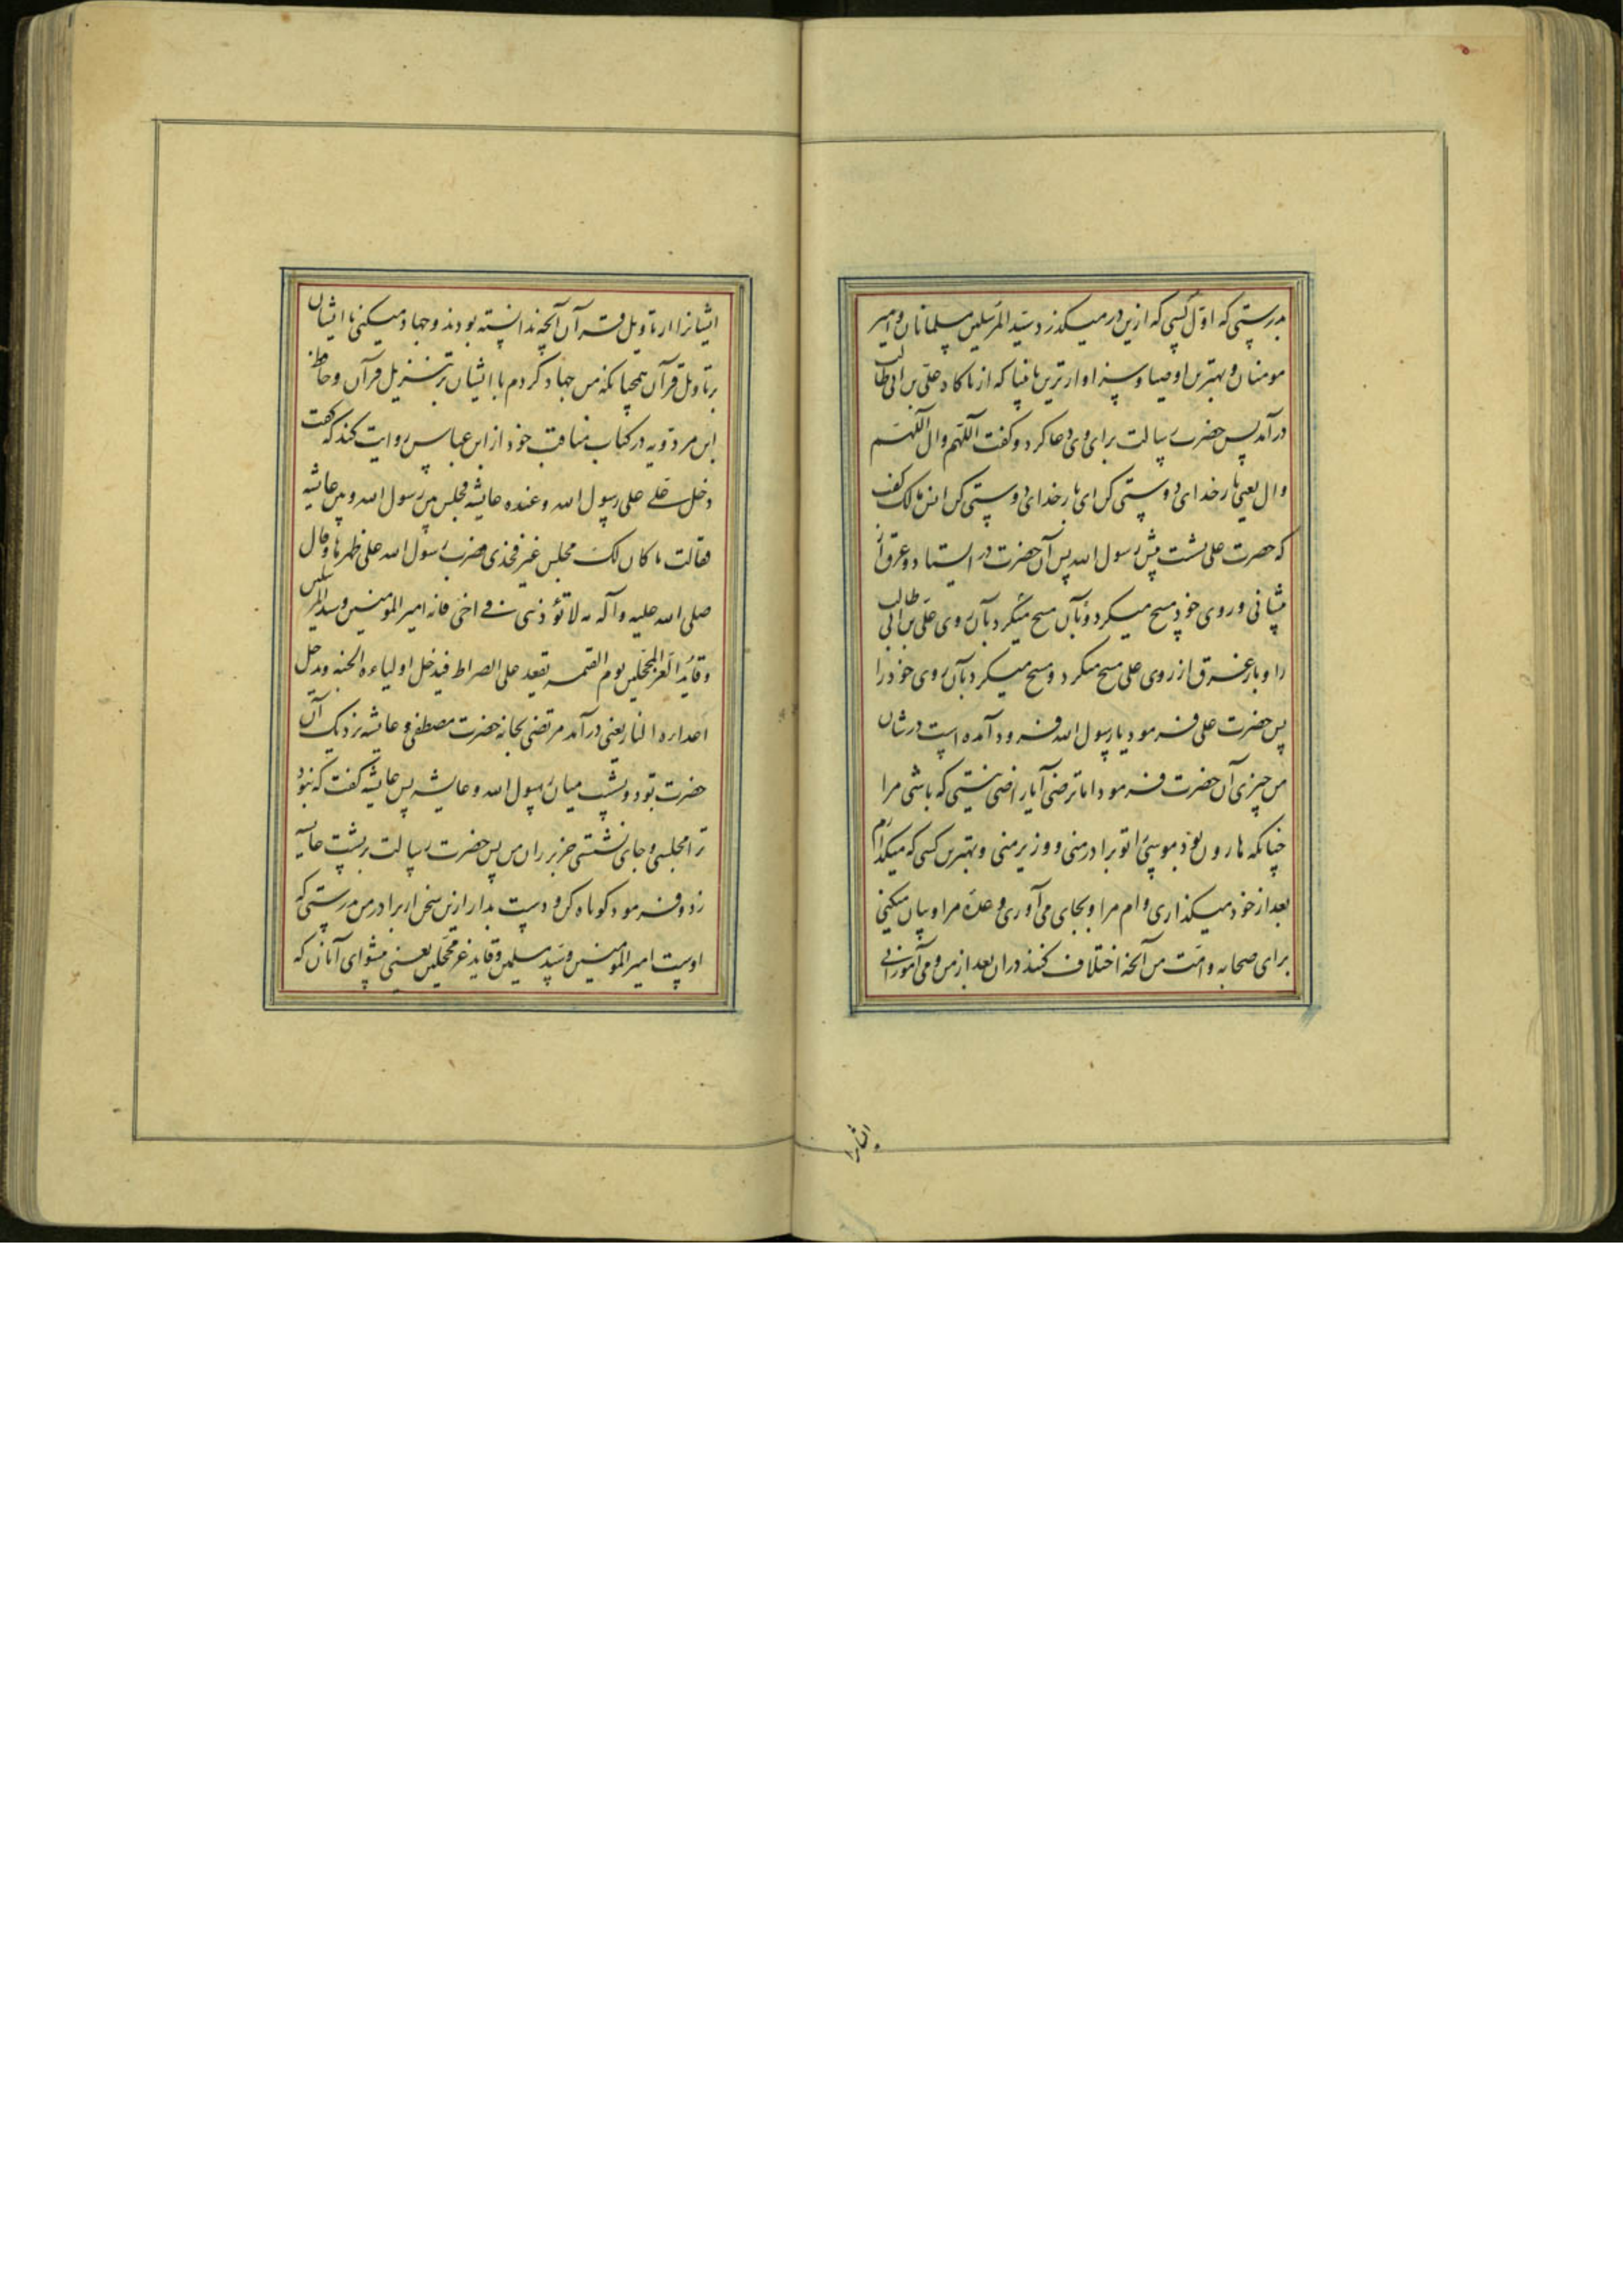 بدرستی که اول کسی که ازین در میگذرد سید المرسلین مسلمانان و امیر
مومنان و بهترین اوصیا و سزاوارترین بانبیا که از ناکاه علی بن ابی طالب
درآمد پس حضرت رسالت برای وی دعا کرد و کفت اللهم وال اللهم
وال یعنی بار خدای دوستی کن ای بار خدای دوستی کن انس مالک کفت
که حضرت علی نشست پیش رسول الله پس آن حضرت در ایستاد و عرق از
پیشانی و روی خود مسح میکرد و بآن مسح میکرد بآن روی علی بن ابی طالب
را و باز عرق از روی علی مسح میکرد و مسح میکرد بآن روی خود را
پس حضرت علی فرمود یا رسول الله فرود آمده است در شان
من چیزی آن حضرت فرمود اما ترضی آیا راضی نیستی که باشی مرا
چنانکه هارون بود بموسی تو برادر منی و وزیر منی و بهترین کسی که میکذارم
بعد از خود میکذاری وام مرا و بجای می آوری وعده مرا و بیان میکنی
برای صحابه و امت من آنچه اختلاف کنند در ان بعد از من و می آموزانی
ایشانرا
ایشانرا از تاویل قرآن آنچه ندانسته بودند و جهاد میکنی با ایشان
بر تاویل قرآن همچنانکه من جهاد کردم با ایشان بر تنزیل قرآن و حافظ
ابن مردویه در کتاب مناقب خود از ابن عباس روایت کند که کفت
دخل علی علی رسول الله و عنده عایشه فجلس بین رسول الله و بین عایشه
فقالت ما کان لک مجلس غیر فخذی فضرب رسول الله علی ظهرها و قال
صلی الله علیه و آله مه لا تؤذینی فی اخی فانه امیر المومنین و سید المرسلین
و قاید الغر المحجلین یوم القیمه یقعد علی الصراط فیدخل اولیاءه الجنه و یدخل
اعداءه النار یعنی درآمد مرتضی بخانه حضرت مصطفی و عایشه نزدیک آن
حضرت بود و نشست میان رسول الله و عایشه پس عایشه کفت که نبود
ترا مجلسی و جای نشستی جز بر ران من پس حضرت رسالت بر پشت عایشه
زد و فرمود کوتاه کن و دست بدار ازین سخن از برادر من بدرستی که
اوست امیر المومنین و سید مسلمین و قاید غر محجلین یعنی پیشوای آنان که